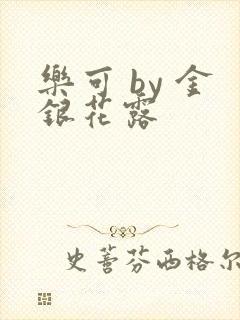 樂可 by 金
銀花露
史蒈芬西格尔